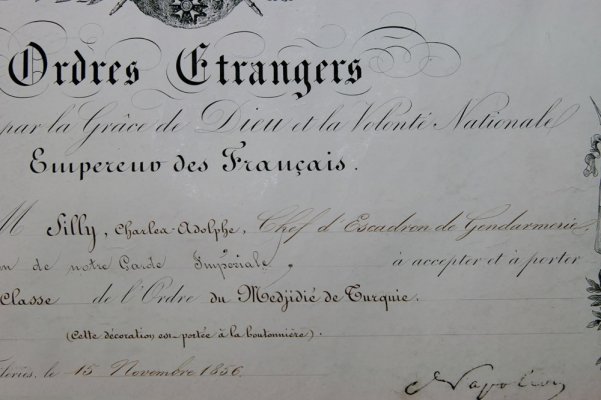 Ordres Etrangers
par la Grâce de Dieu et la Volonté Nationale
Empereur des Français.
M Silly, Charles-Adolphe, Chef d'Escadron de Gendarmerie,
de notre Garde Impériale, à accepter et à porter
Classe de l'Ordre du Medjidié de Turquie.
(Cette décoration est portée à la boutonnière).
le 15 Novembre 1856.
Napoléon